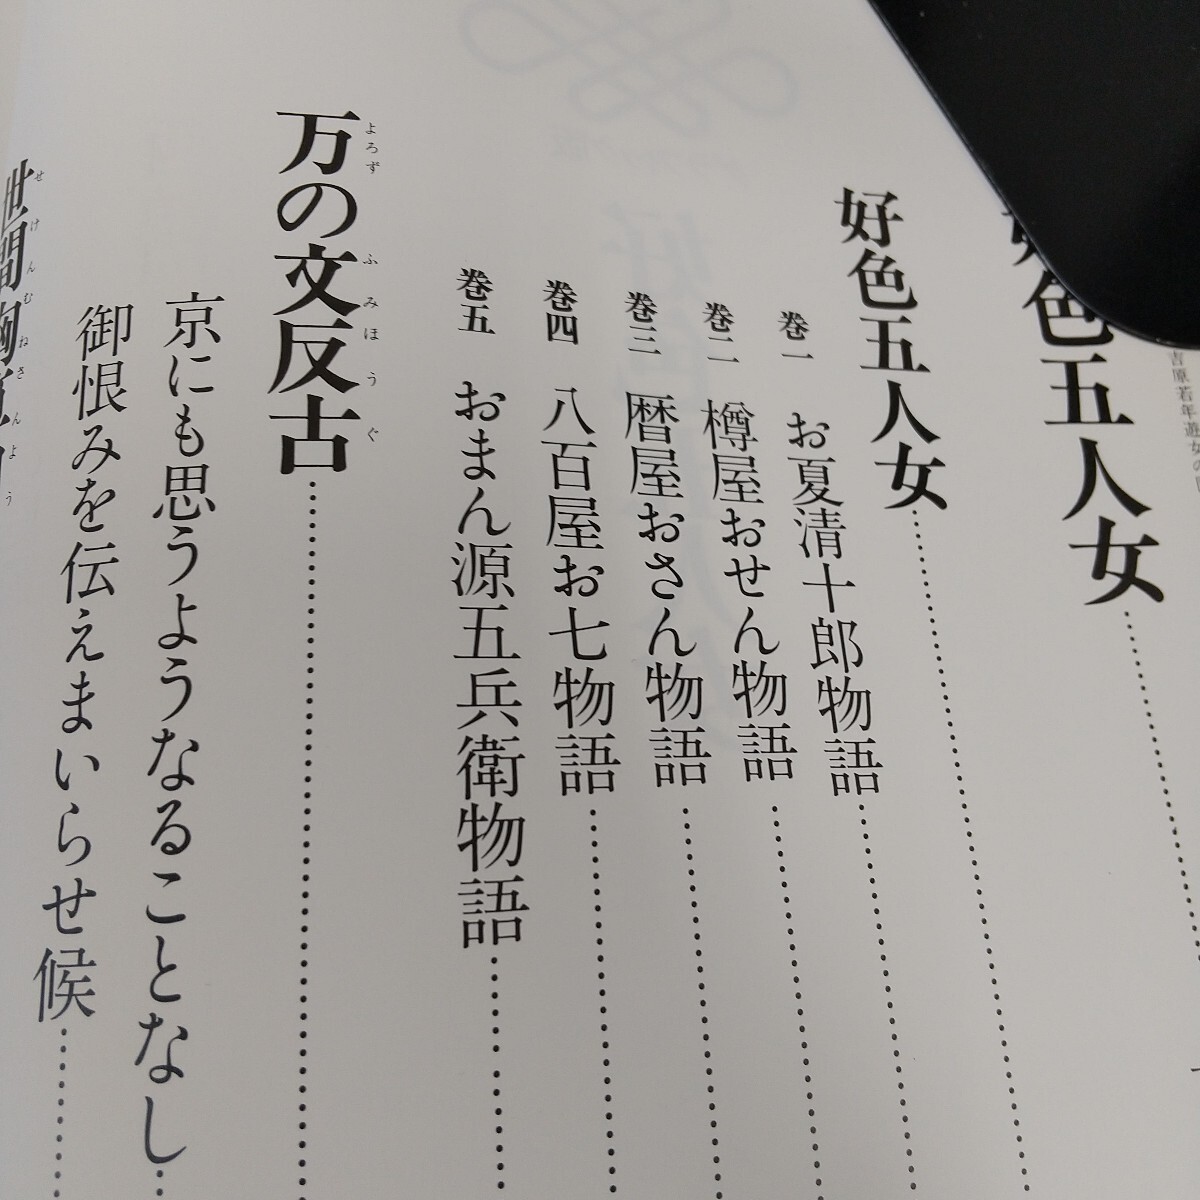 色五人女
好色五人女
巻一 お夏清十郎物語
巻二 樽屋おせん物語
巻三 暦屋おさん物語
巻四 八百屋お七物語
巻五 おまん源五兵衛物語
万の文反古
よろず ふみほうぐ
京にも思うようなることなし
御恨みを伝えまいらせ候
世間胸
せけんむねさんよう